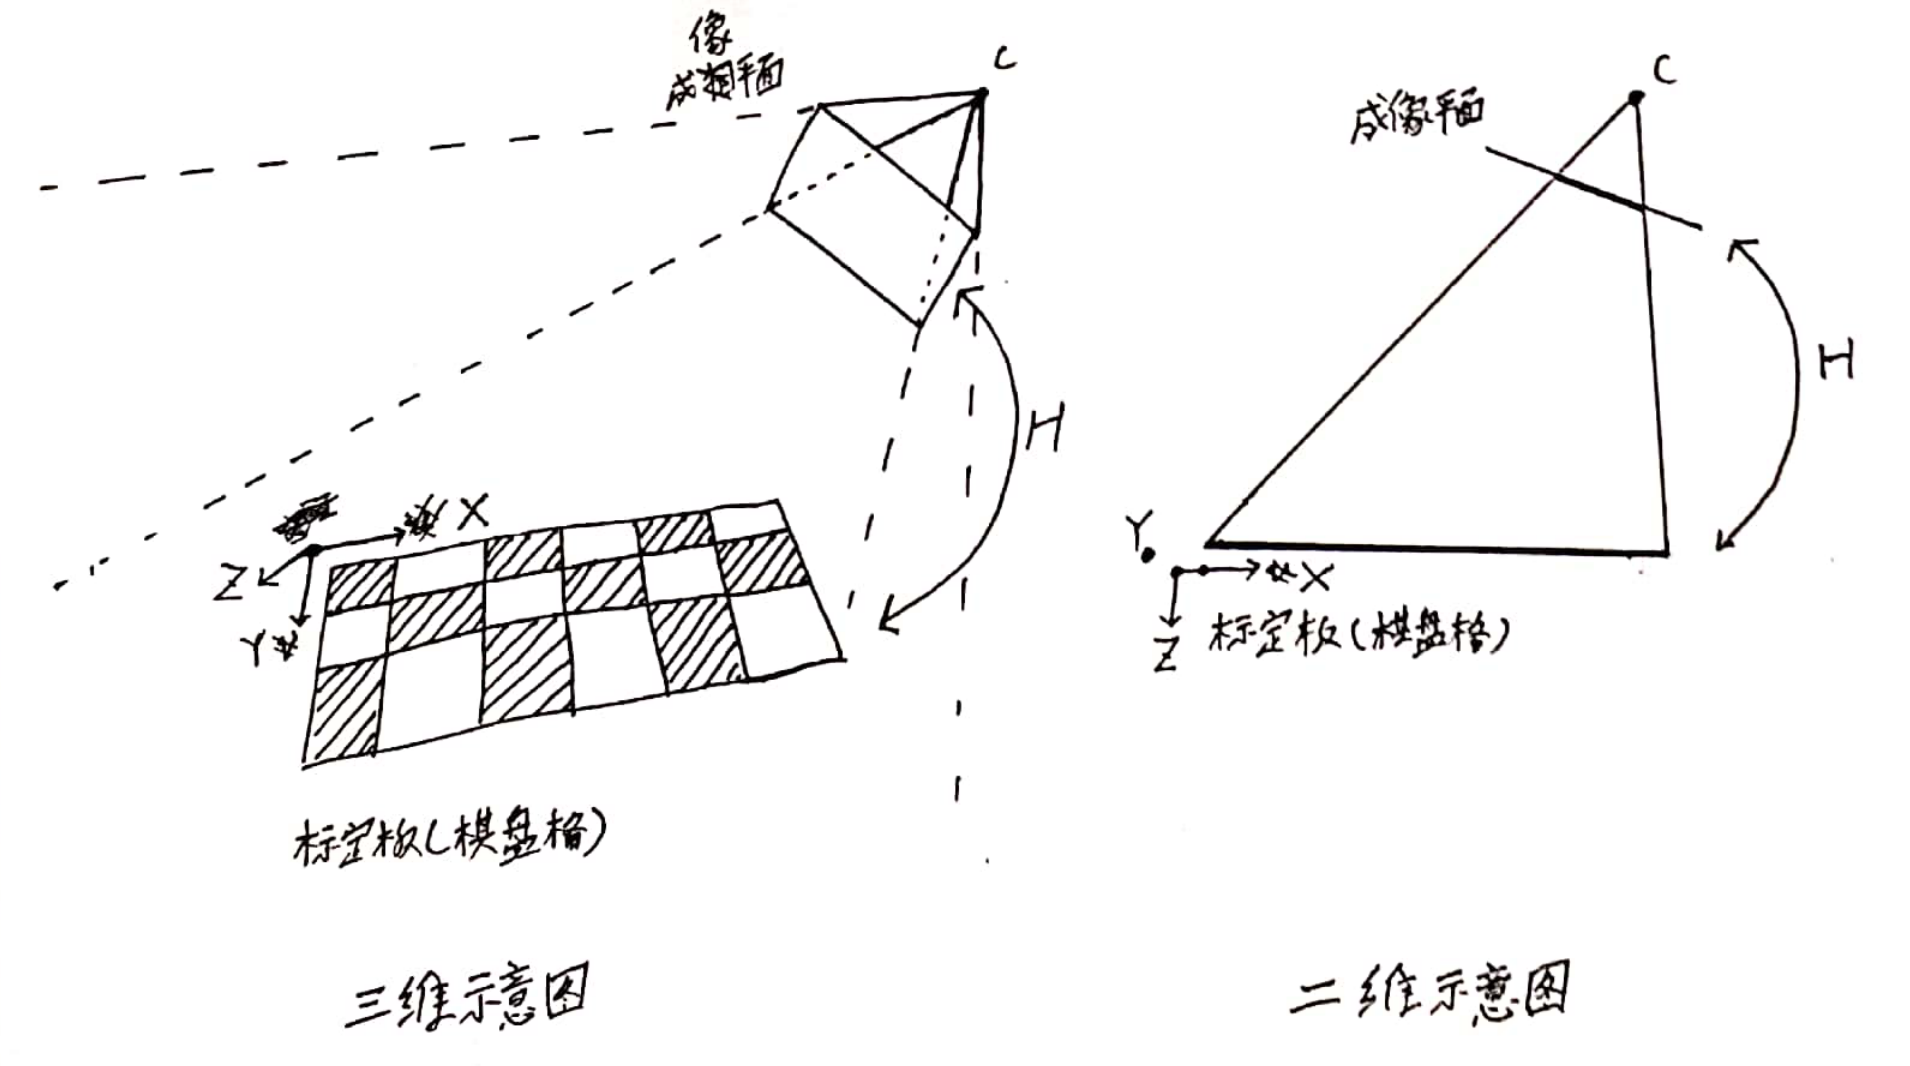 像
成相平面
C
H
X
Z
Y
标定板(棋盘格)
三维示意图
C
成像平面
H
Y
X
Z
标定板(棋盘格)
二维示意图